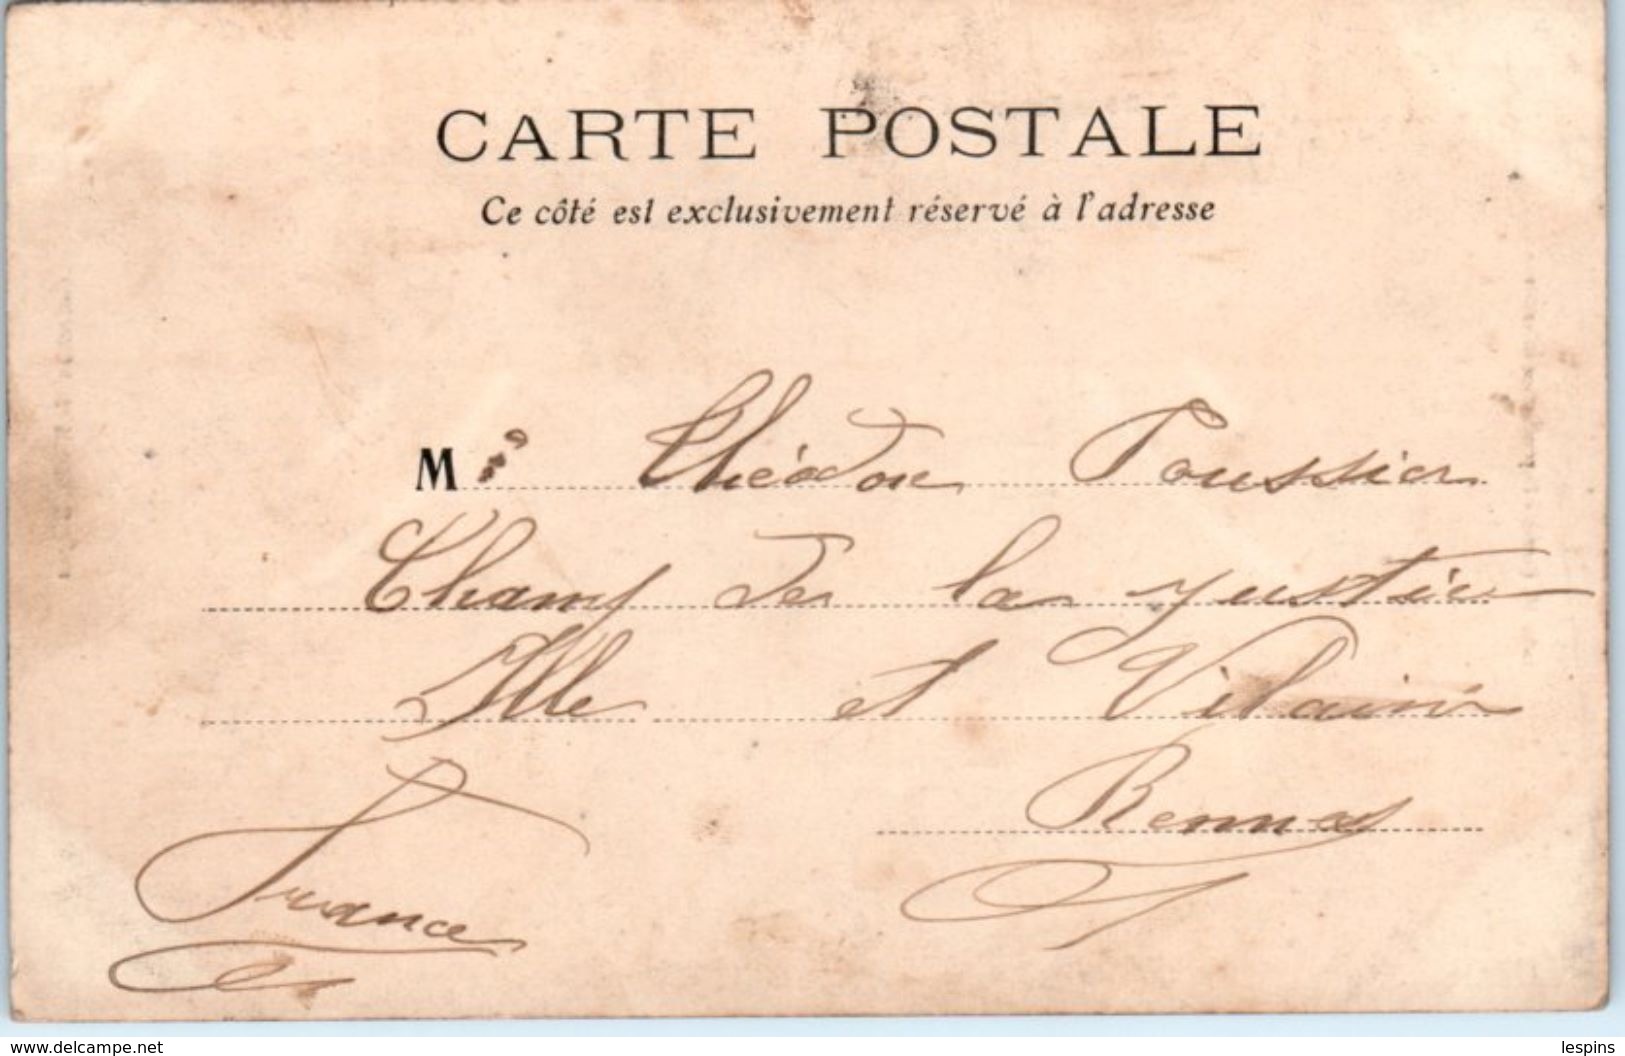 CARTE POSTALE
Ce côté est exclusivement réservé à l'adresse
Mr Théodore Toussier
Champ de la Justice
Ille et Vilaine
Rennes
France
www.delcampe.net
lespins